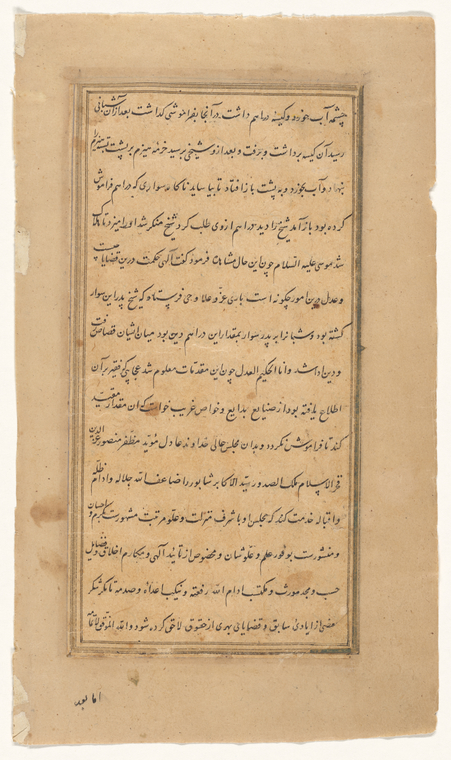 چشمه آب خورد و کیسه دراهم داشت در آنجا بفراموشی گذاشت بعد از آن شبانی
رسید آن کیسه برداشت و برفت و بعد از وی شیخی برسید خرمه هیزم بر پشت بسته هیزم
بنهاد و آب بخورد و به پشت باز افتاد تا بیاساید ناکاه سواری که دراهم فراموش
کرده بود باز آمد شیخ را دید دراهم از وی طلب کرد شیخ منکر شد او را میزد تا هلاک
شد موسی علیه السلام چون این حال مشاهده فرمود گفت الهی حکمت درین قضایا چیست
و عدل درین امور چگونه است باری عز و علا وحی فرستاد که شیخ پدر این سوار
کشته بود و شبانرا بر پدر سوار بمقدار این دراهم دین بود میان ایشان قصاص رفت
و دین ادا شد و انا الحکیم العدل چون این مقدمات معلوم شد عجایبی که فقیر بر آن
اطلاع یافته بود از صنایع بدایع و خواص غریب خواست که آن مقدار مقید
کند تا فراموش نگردد و بدان مجلس عالی خداوند عادل مؤید مظفر منصور عز الدین
فخر الاسلام ملک الصدور سید الاکابر شابور ضاعف الله جلاله و ادام ظله
و اقباله خدمت کند که مجلس او با شرف منزلت و علو مرتبت مشهورست بکرم و احسان
و منشورست بوفور علم و علو شان و مخصوص از تائید الهی و بمکارم اخلاق و فضایل
حسب و مجد موروث و مکتسب ادام الله رفعته و نکب اعداءه و صدمه تا مگر شکر
بعضی از ایادی سابق و قضایای بهری از حقوق لاحق کرده شود والله الموفق
اما بعد